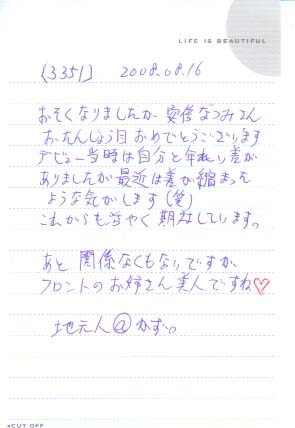 LIFE IS BEAUTIFUL
[3351] 2008.08.16
おそくなりましたが 安倍なつみさん
おたんじょう日おめでとうございます
デビュー当時は自分と年れい差が
ありましたが最近は差が縮まった
ような気がします(笑)
これからも 期待しています。
あと 関係なくもないですが、
フロントのお姉さん美人ですね♡
地元人@かず。
◂CUT OFF